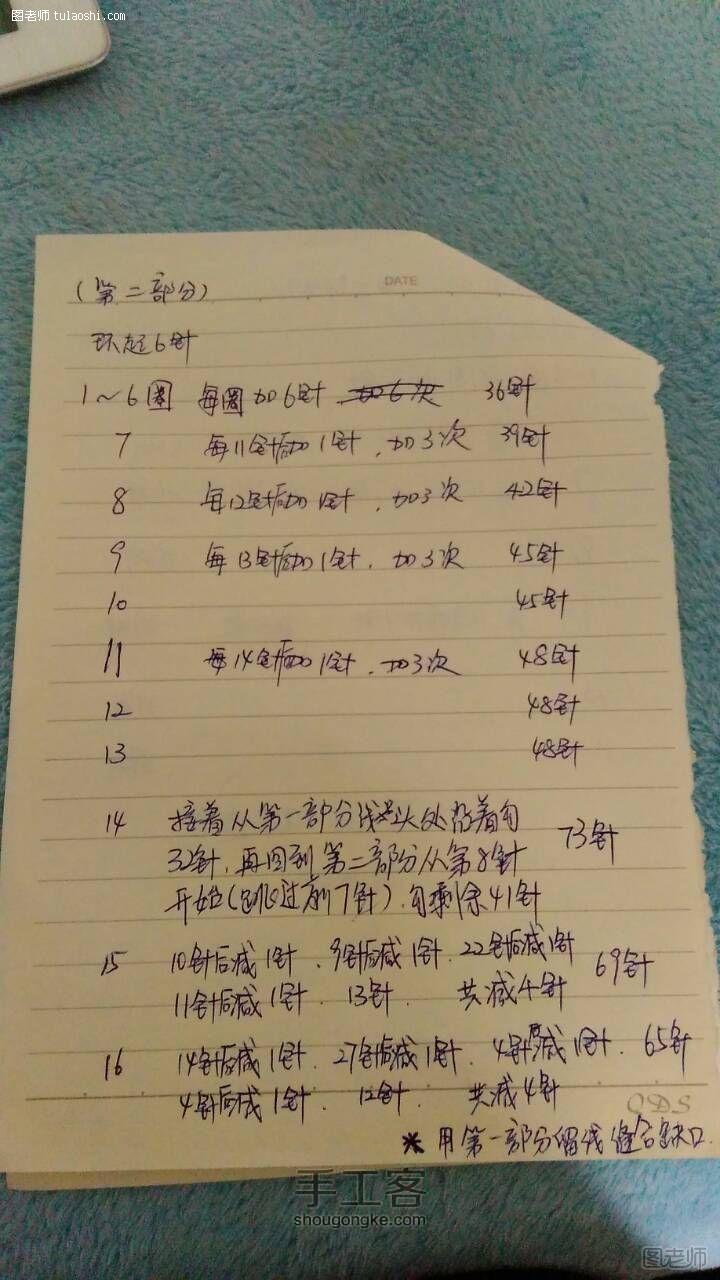 图老师 tulaoshi.com
DATE
(第二部分)
环起6针
1~6圈 每圈加6针 加6次 36针
7 每11针后加1针,加3次 39针
8 每12针后加1针,加3次 42针
9 每13针后加1针,加3次 45针
10 45针
11 每14针后加1针,加3次 48针
12 48针
13 48针
14 接着从第一部分线头处接着勾
32针,再回到第二部分从第8针 73针
开始(跳过前7针).勾剩余41针
15 10针后减1针、9针后减1针、22针后减1针
11针后减1针、13针、共减4针 69针
16 14针后减1针、27针后减1针、4针后减1针、65针
4针后减1针、12针、共减4针
QDS
* 用第一部分留线缝合缺口.
手工客
shougongke.com
图老师